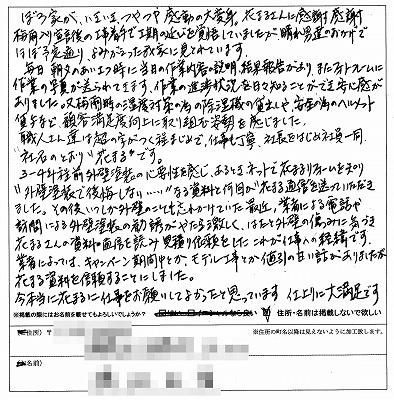 ぼろ家が、いまいまつやつや感動の大変身。花まるさんに感謝感謝
梅雨入り宣言後の工事着手で工期の遅いを覚悟していましたが晴れ男のおかげで
ほぼ予定通り、よみがえった我家に見とれています。
毎日朝夕のあいさつ時に当日の作業内容の説明、結果報告があり、またフォトフレームに
作業の写真が送られてきます。作業の進捗状況を日々知ることができ安心感が
ありました。又梅雨時の湿度対策の為の除湿機の貸出しや、安全の為のヘルメット
貸与など、顧客満足度向上に取り組む姿勢を感じました。
職人さん達は超の字がつく程まじめで、仕事も丁寧、社長をはじめ社員一同、
"社名のとおり" 花まる"です。
3~4年程前外壁塗装の必要性を感じ、あるときネットで花まるリフォームを知り
"外壁塗装で後悔しない・・・・"なる資料と何冊か花まる通信を送っていただき
ました。その後いつしか外壁のことも忘れかけていた最近、業者による電話や
訪問による外壁塗装の勧誘がやたら激しく、はたと外壁の傷みに気づき
花まるさんの資料の画面を読み見積り依頼をしたこれが仕事への経緯です。
業者によっては、キャンペーン期間中とか、モデル工事とか値引の甘い話がありましたが
花まる資料を信頼することにしました。
今本当に花まるに仕事をお願いしてよかったと思っています 仕上りに大満足です
※掲載の際にはお名前を載せてもよろしいでしょうか?
住所・名前は掲載しないで欲しい
ご住所) 〒
※住所の町名以降は見えないように加工致します。
お名前)